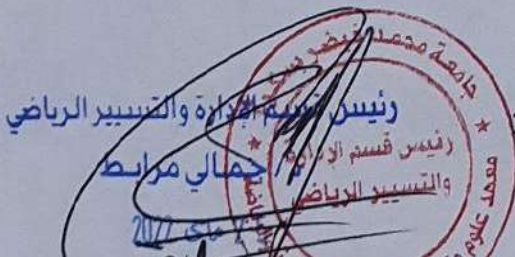 رئيس قسم الإدارة والتسيير الرياضي
د/ جمالي مرابط
ماي 2022
جامعة محمد خيضر بسكرة
رئيس قسم الإدارة
والتسيير الرياضي
معهد علوم